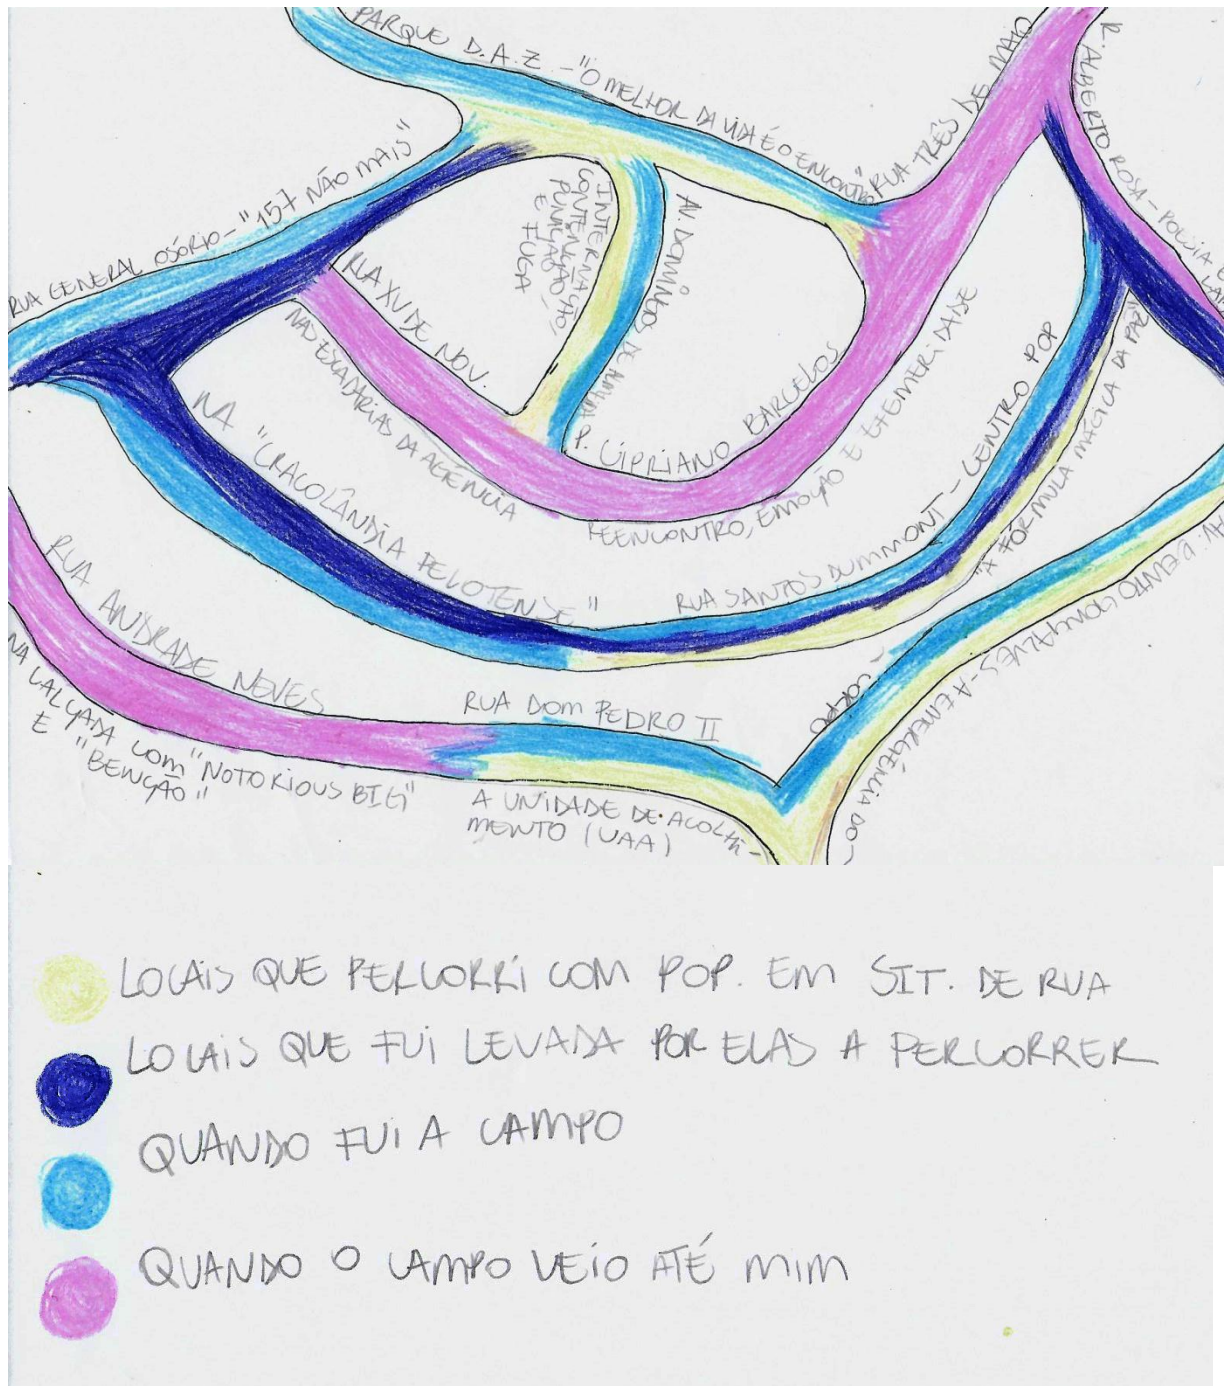 PARQUE D.A.Z - "O MELHOR DA VIDA É O ENCONTRO"
RUA TRÊS DE MAIO
R. ALBERTO ROSA - POESIA E
RUA GENERAL OSÓRIO - "157 NÃO MAIS"
INTERNAÇÃO,
CONTENÇÃO,
PUNIÇÃO -
E FUGA
AV. DOMINGOS DE
RUA XV DE NOV.
NAS ESCADARIAS DA AGÊNCIA
P. CIPRIANO BARCELOS
REENCONTRO, EMOÇÃO E EFEMERIDADE
NA "CRACOLÂNDIA PELOTENSE"
RUA SANTOS DUMMONT - CENTRO POP
"A FÓRMULA MÁGICA DA PAZ"
RUA ANDRADE NEVES
NA CALÇADA COM "NOTORIOUS BIG"
E "BENÇÃO"
RUA DOM PEDRO II
A UNIDADE DE ACOLHI-
MENTO (UAA)
AV. BENTO GONÇALVES - A EMERGÊNCIA DO -
- CORPO
LOCAIS QUE PERCORRI COM POP. EM SIT. DE RUA
LOCAIS QUE FUI LEVADA POR ELAS A PERCORRER
QUANDO FUI A CAMPO
QUANDO O CAMPO VEIO ATÉ MIM